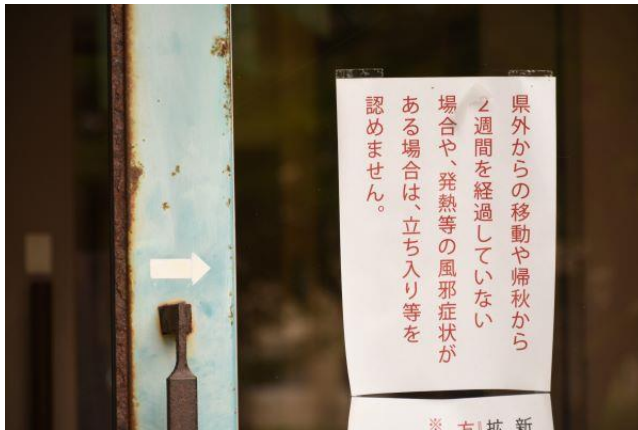 県外からの移動や帰秋から
2週間を経過していない
場合や、発熱等の風邪症状が
ある場合は、立ち入り等を
認めません。
新
拡
方
※